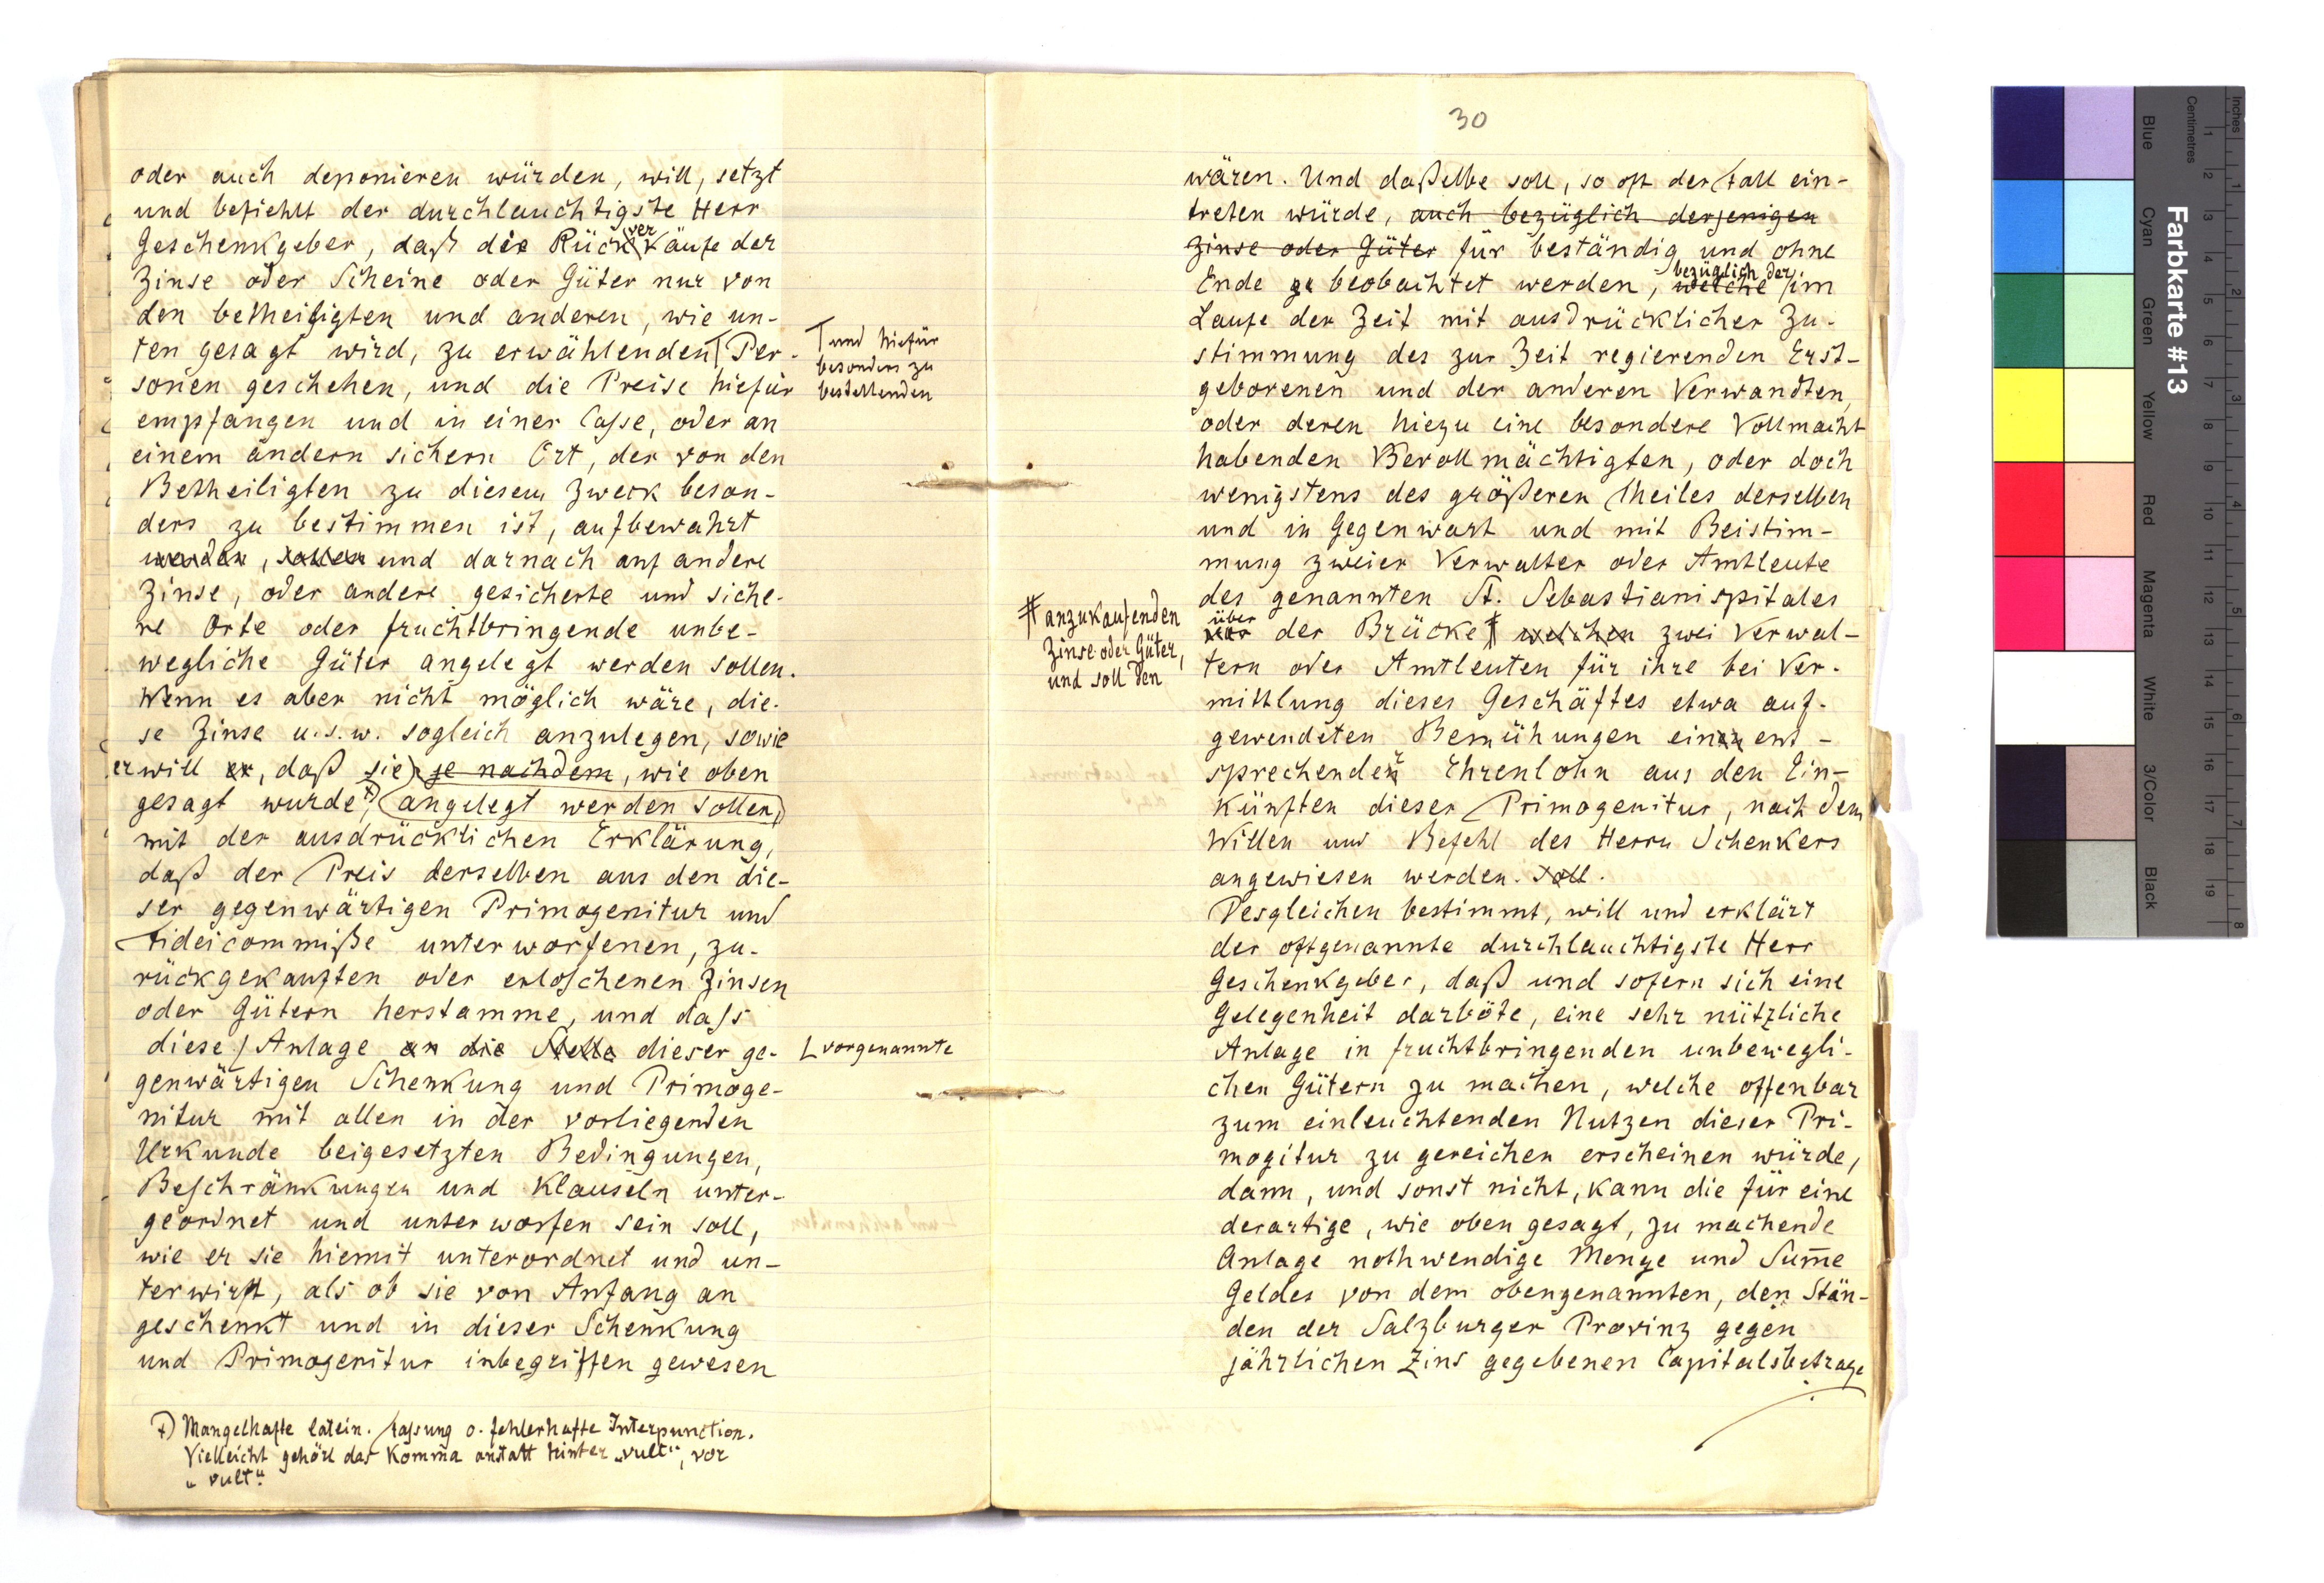 oder auch deponieren würden, will, setzt
und befiehlt der durchlauchtigste Herr
Geschenkgeber, daß die Rückverkäufe der
Zinse oder Scheine oder Güter nur von
den betheiligten und anderen, wie un-
ten gesagt wird, zu erwählenden Per-
sonen geschehen, und die Preise hiefür
empfangen und in einer Casse, oder an
einem andern sichern Ort, der von den
Betheiligten zu diesem Zweck beson-
ders zu bestimmen ist, aufbewahrt
werden, sollen und darnach auf andere
Zinse, oder andere gesicherte und siche-
re Orte oder fruchtbringende unbe-
wegliche Güter angelegt werden sollen.
Wenn es aber nicht möglich wäre, die-
se Zinse u.s.w. sogleich anzulegen, sowie
er will er, daß sie, je nachdem, wie oben
gesagt wurde +), angelegt werden sollen,
mit der ausdrücklichen Erklärung,
daß der Preis derselben aus den die-
ser gegenwärtigen Primogenitur und
Fideicommiße unterworfenen, zu-
rückgekauften oder erloschenen Zinsen
oder Gütern herstamme, und dass
diese Anlage an die Stelle dieser ge-
genwärtigen Schenkung und Primoge-
nitur mit allen in der vorliegenden
Urkunde beigesetzten Bedingungen,
Beschränkungen und Klauseln unter-
geordnet und unterworfen sein soll,
wie er sie hiemit unterordnet und un-
terwirft, als ob sie von Anfang an
geschenkt und in dieser Schenkung
und Primogenitur inbegriffen gewesen
┬ und hiefür
besonders zu
bestellenden
L vorgenannte
+) Mangelhafte latein. Fassung o. fehlerhafte Interpunction.
Vielleicht gehört das Komma anstatt hinter „vult“, vor
„vult“.
30
wären. Und daßelbe soll, so oft der Fall ein-
treten würde, auch bezüglich derjenigen
Zinse oder Güter für beständig und ohne
Ende ge beobachtet werden, welche bezüglich der im
Laufe der Zeit mit ausdrücklicher Zu-
stimmung des zur Zeit regierenden Erst-
geborenen und der anderen Verwandten,
oder deren hiezu eine besondere Vollmacht
habenden Bevollmächtigten, oder doch
wenigstens des größeren Theiles derselben
und in Gegenwart und mit Beistim-
mung zweier Verwalter oder Amtleute
des genannten St. Sebastianispitales
über der Brücke ⧧ welchen zwei Verwal-
tern oder Amtleuten für ihre bei Ver-
mittlung dieses Geschäftes etwa auf-
gewendeten Bemühungen ein ent-
sprechender Ehrenlohn aus den Ein-
künften dieser Primogenitur, nach dem
Willen und Befehl des Herrn Schenkers
angewiesen werden. soll.
Desgleichen bestimmt, will und erklärt
der oftgenannte durchlauchtigste Herr
Geschenkgeber, daß und sofern sich eine
Gelegenheit darböte, eine sehr nützliche
Anlage in fruchtbringenden unbewegli-
chen Gütern zu machen, welche offenbar
zum einleuchtenden Nutzen dieser Pri-
mogitur zu gereichen erscheinen würde,
dann, und sonst nicht, kann die für eine
derartige, wie oben gesagt, zu machende
Anlage nothwendige Menge und Sum̅e
Geldes von dem obengenannten, den Stän-
den der Salzburger Provinz gegen
jährlichen Zins gegebenen Capitalsbetrage
⧧ anzukaufenden
Zinse oder Güter,
und soll den
Farbkarte #13
Inches
Centimetres
1 2 3 4 5 6 7 8
1 2 3 4 5 6 7 8 9 10 11 12 13 14 15 16 17 18 19
Blue
Cyan
Green
Yellow
Red
Magenta
White
3/Color
Black